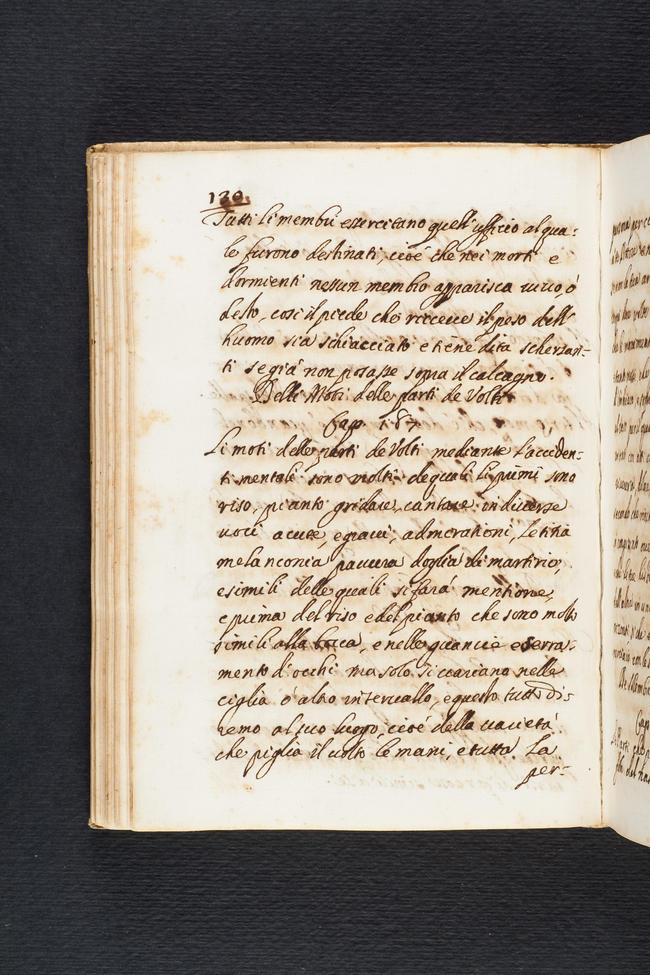 130.
Tutti li membri esercitano quell'ufficio al qua-
le furono destinati, cioè che nei morti e
dormienti nessun membro apparisca vivo, ò
desto, così il piede che riceve il peso dell'
huomo sia schiacciato e
ti se già non posasse sopra il calcagno.
Delli Moti delle parti de Volti
Cap. 187
Li moti delle parti de Volti mediante l'acciden-
ti mentali sono molti de quali li primi sono
riso, pianto gridare, cantare in diverse
voci acute, e gravi, admirationi, letitia
melanconia paura doglia di martirio,
e simili delle quali si farà mentione,
e prima del riso e del pianto che sono molto
simili alla bocca, e nelle guancie e serra-
mento d'occhi ma solo si variano nelle
ciglia ò altro intervallo, e questo tutto di-
remo al suo luogo, cioè della varietà
che piglia il volto le mani, e tutta La
per-